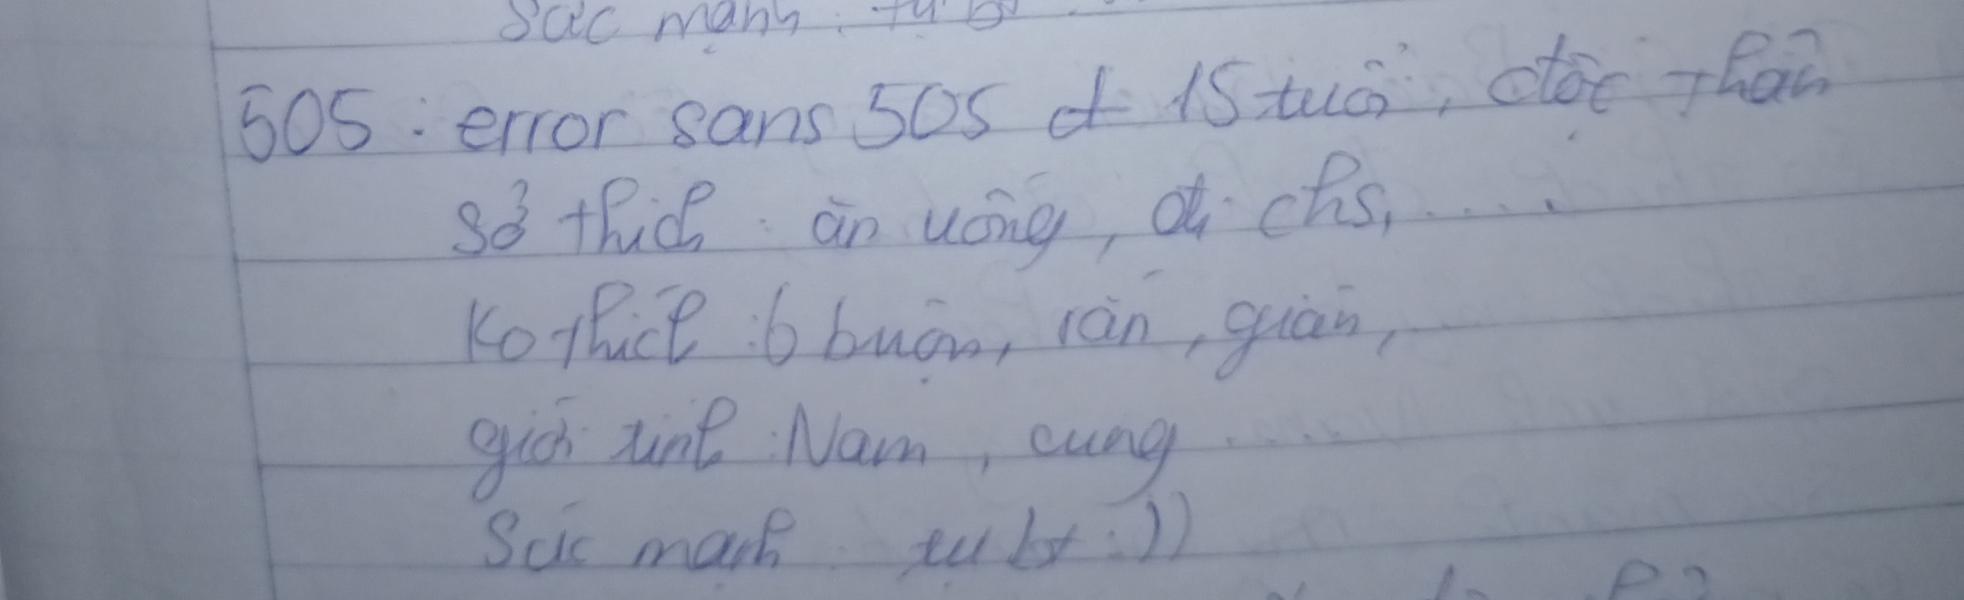 Sức mạnh: tự bt
505: error sans 505 đ 15 tuổi, độc thân
Sở thích: ăn uống, đi chs, .....
Ko thích: 6 buồn, rắn, gián,
giới tính: Nam, cung .....
Sức mạnh: tự bt :))